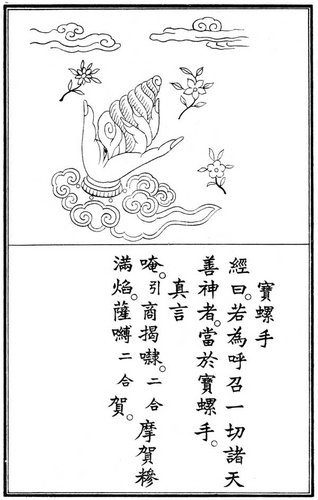 寶螺手
經曰。若為呼召一切諸天
善神者。當於寶螺手。
真言
唵。引商揭㘑。二合摩賀穇
滿焰。薩嚩二合賀。